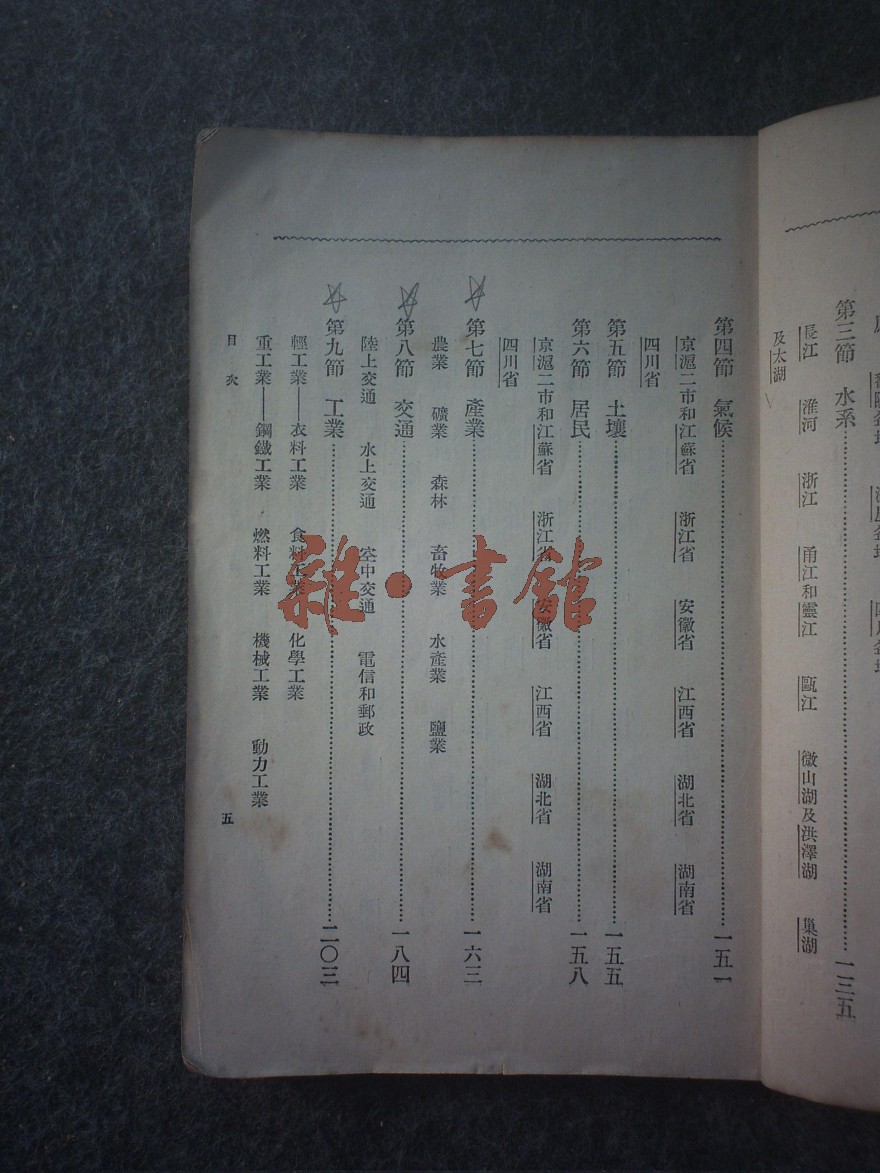 第三節 水系……一三五
長江 淮河 浙江 甬江和靈江 甌江 微山湖及洪澤湖 巢湖
及太湖
第四節 氣候……一五一
京滬二市和江蘇省 浙江省 安徽省 江西省 湖北省 湖南省
四川省
第五節 土壤……一五五
第六節 居民……一五八
京滬二市和江蘇省 浙江省 安徽省 江西省 湖北省 湖南省
四川省
第七節 產業……一六三
農業 礦業 森林 畜牧業 水產業 鹽業
第八節 交通……一八四
陸上交通 水上交通 空中交通 電信和郵政
第九節 工業……二〇三
輕工業——衣料工業 食料工業 化學工業
重工業——鋼鐵工業 燃料工業 機械工業 動力工業
目次
五
雜·書館